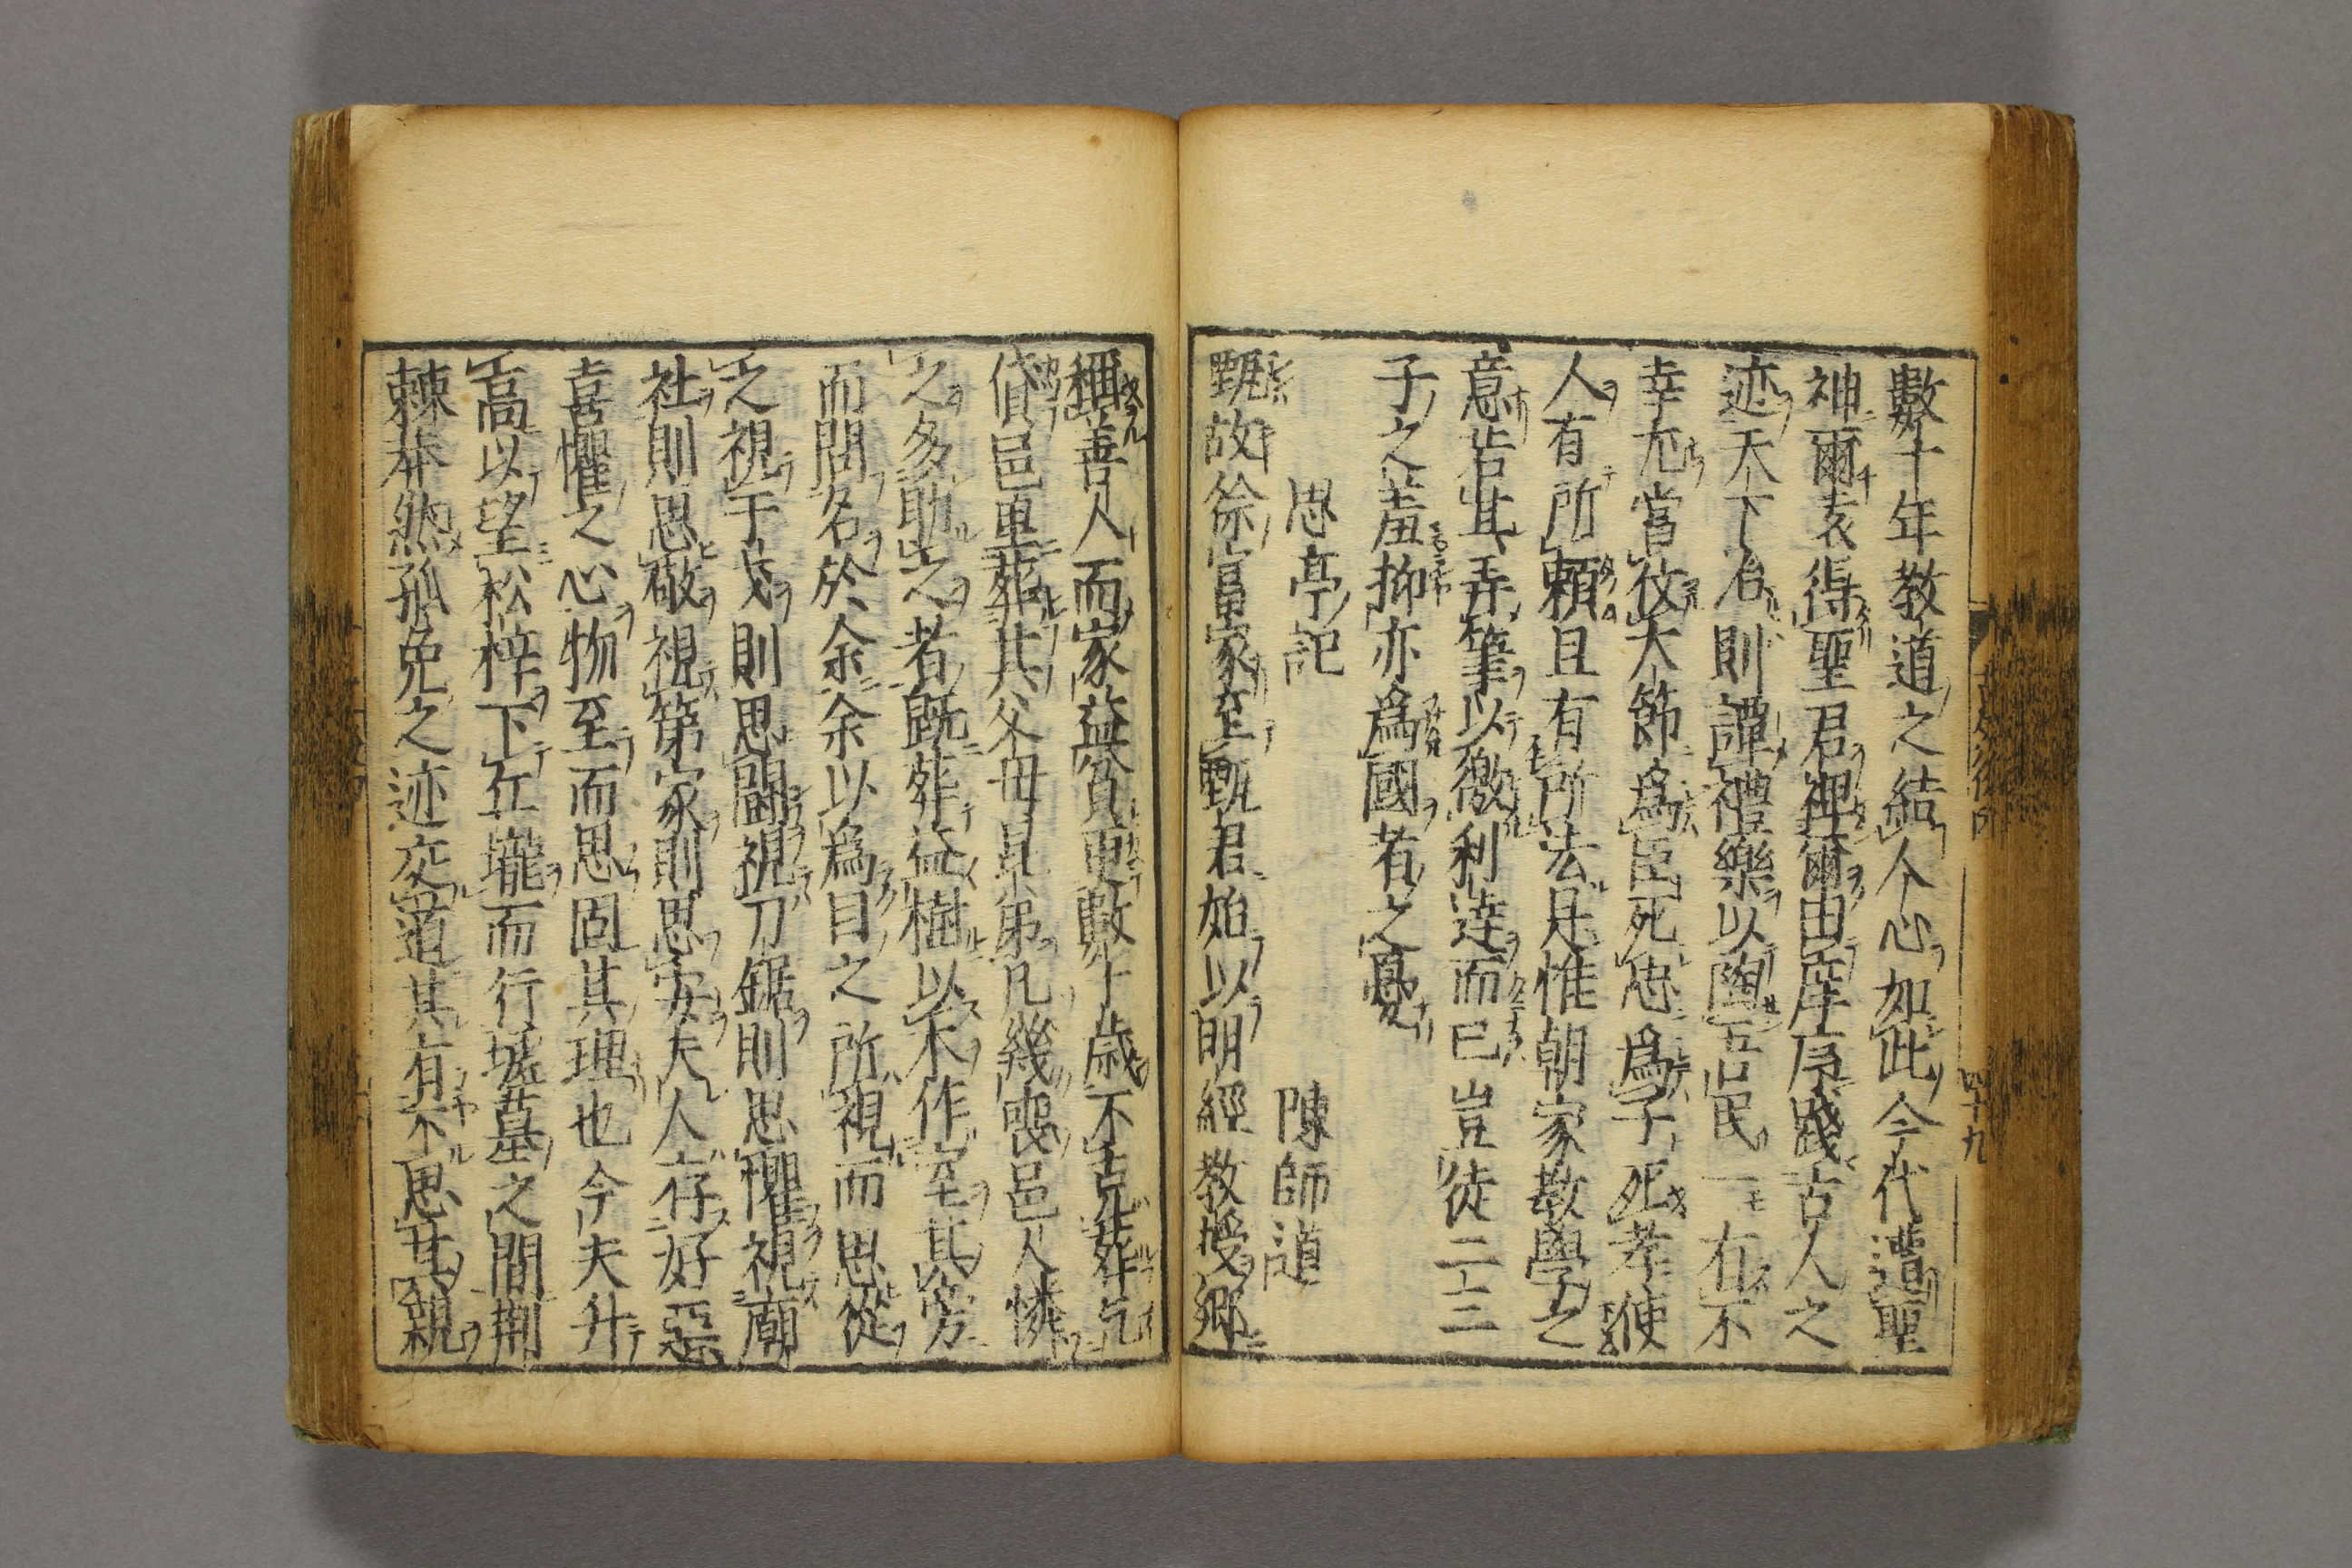 數十年教道之結人心如此今代遭聖
神爾袁得聖君俾爾由庠序踐古人之
迹天下治則譚禮樂以陶吾民一有不
幸尤當仗大節爲臣死忠爲子死孝使
人有所賴且有所法是惟朝家教學之
意若其弄筆以徼利達而已豈徒二三
子之羞抑亦爲國者之憂
思亭記 陳師道
甄故徐富家至甄君始以明經教授鄉
稱善人而家益貧更數十歲不克葬乞
貸邑里葬其父母昆弟凡幾喪邑人憐
之多助之者既葬益樹以木作室其旁
而問名於余余以爲目之所視而思從
之視干戈則思鬪視刀鋸則思懼視廟
社則思敬視第家則思安夫人存好惡
喜懼之心物至而思固其理也今夫升
高以望松梓下丘壠而行墟墓之間荆
棘莽然狐兔之迹交道其有不思其親
四十九